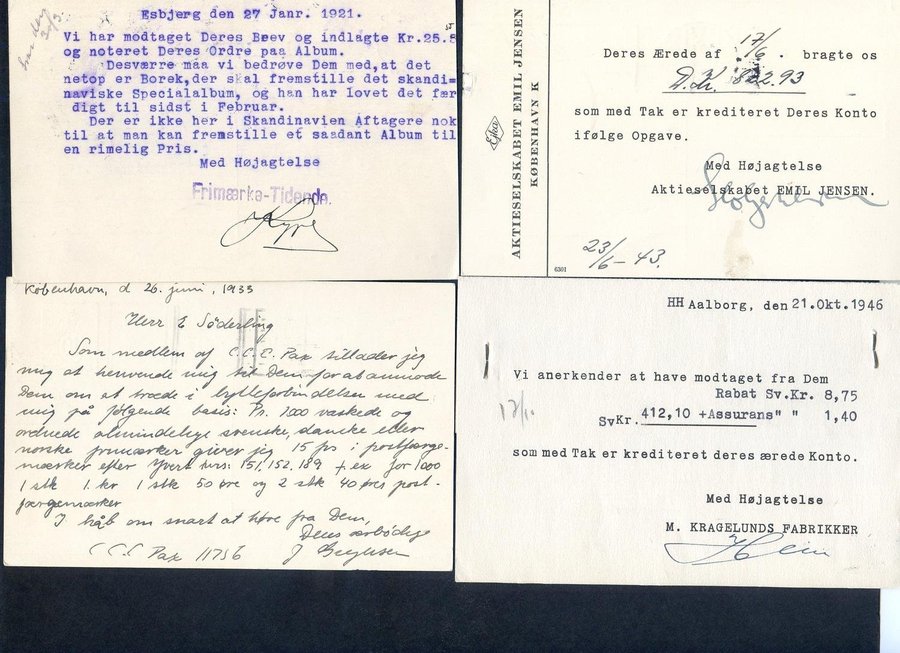 Esbjerg den 27 Janr. 1921.
Vi har modtaget Deres Brev og indlagte Kr.25.5
og noteret Deres Ordre paa Album.
Desværre maa vi bedrøve Dem med, at det
netop er Borek, der skal fremstille det skandi=
naviske Specialalbum, og han har lovet det fær
digt til sidst i Februar.
Der er ikke her i Skandinavien Aftagere nok
til at man kan fremstille et saadant Album til
en rimelig Pris.
Med Højagtelse
Frimærke-Tidende.
AKTIESELSKABET EMIL JENSEN
KØBENHAVN K
Deres Ærede af 17/6 bragte os
D. Kr. 822.93
som med Tak er krediteret Deres Konto
ifølge Opgave.
Med Højagtelse
Aktieselskabet EMIL JENSEN.
23/6 - 43.
6301
København, d 26. juni, 1933
Herr E Söderling
Som medlem af C.C.C. Pax tillader jeg
mig at henvende mig til Dem for at anmode
Dem om at træde i bytteforbindelse med
mig på følgende basis: Pr. 1000 vaskede og
ordnede almindelige svenske, danske eller
norske frimærker giver jeg 15 frs i postfærge-
mærker efter Yvert nrs: 151, 152, 189 f. ex for 1000
1 stk 1 kr 1 stk 50 øre og 2 stk 40 øres post-
færgemærker
I håb om snart at høre fra Dem,
Deres ærbødige
C.C.C Pax 11756 J
HH Aalborg, den 21.Okt.1946
Vi anerkender at have modtaget fra Dem
Rabat Sv.Kr. 8,75
SvKr. 412,10 +Assurans" " 1,40
17/10
som med Tak er krediteret deres ærede Konto.
Med Højagtelse
M. KRAGELUNDS FABRIKKER